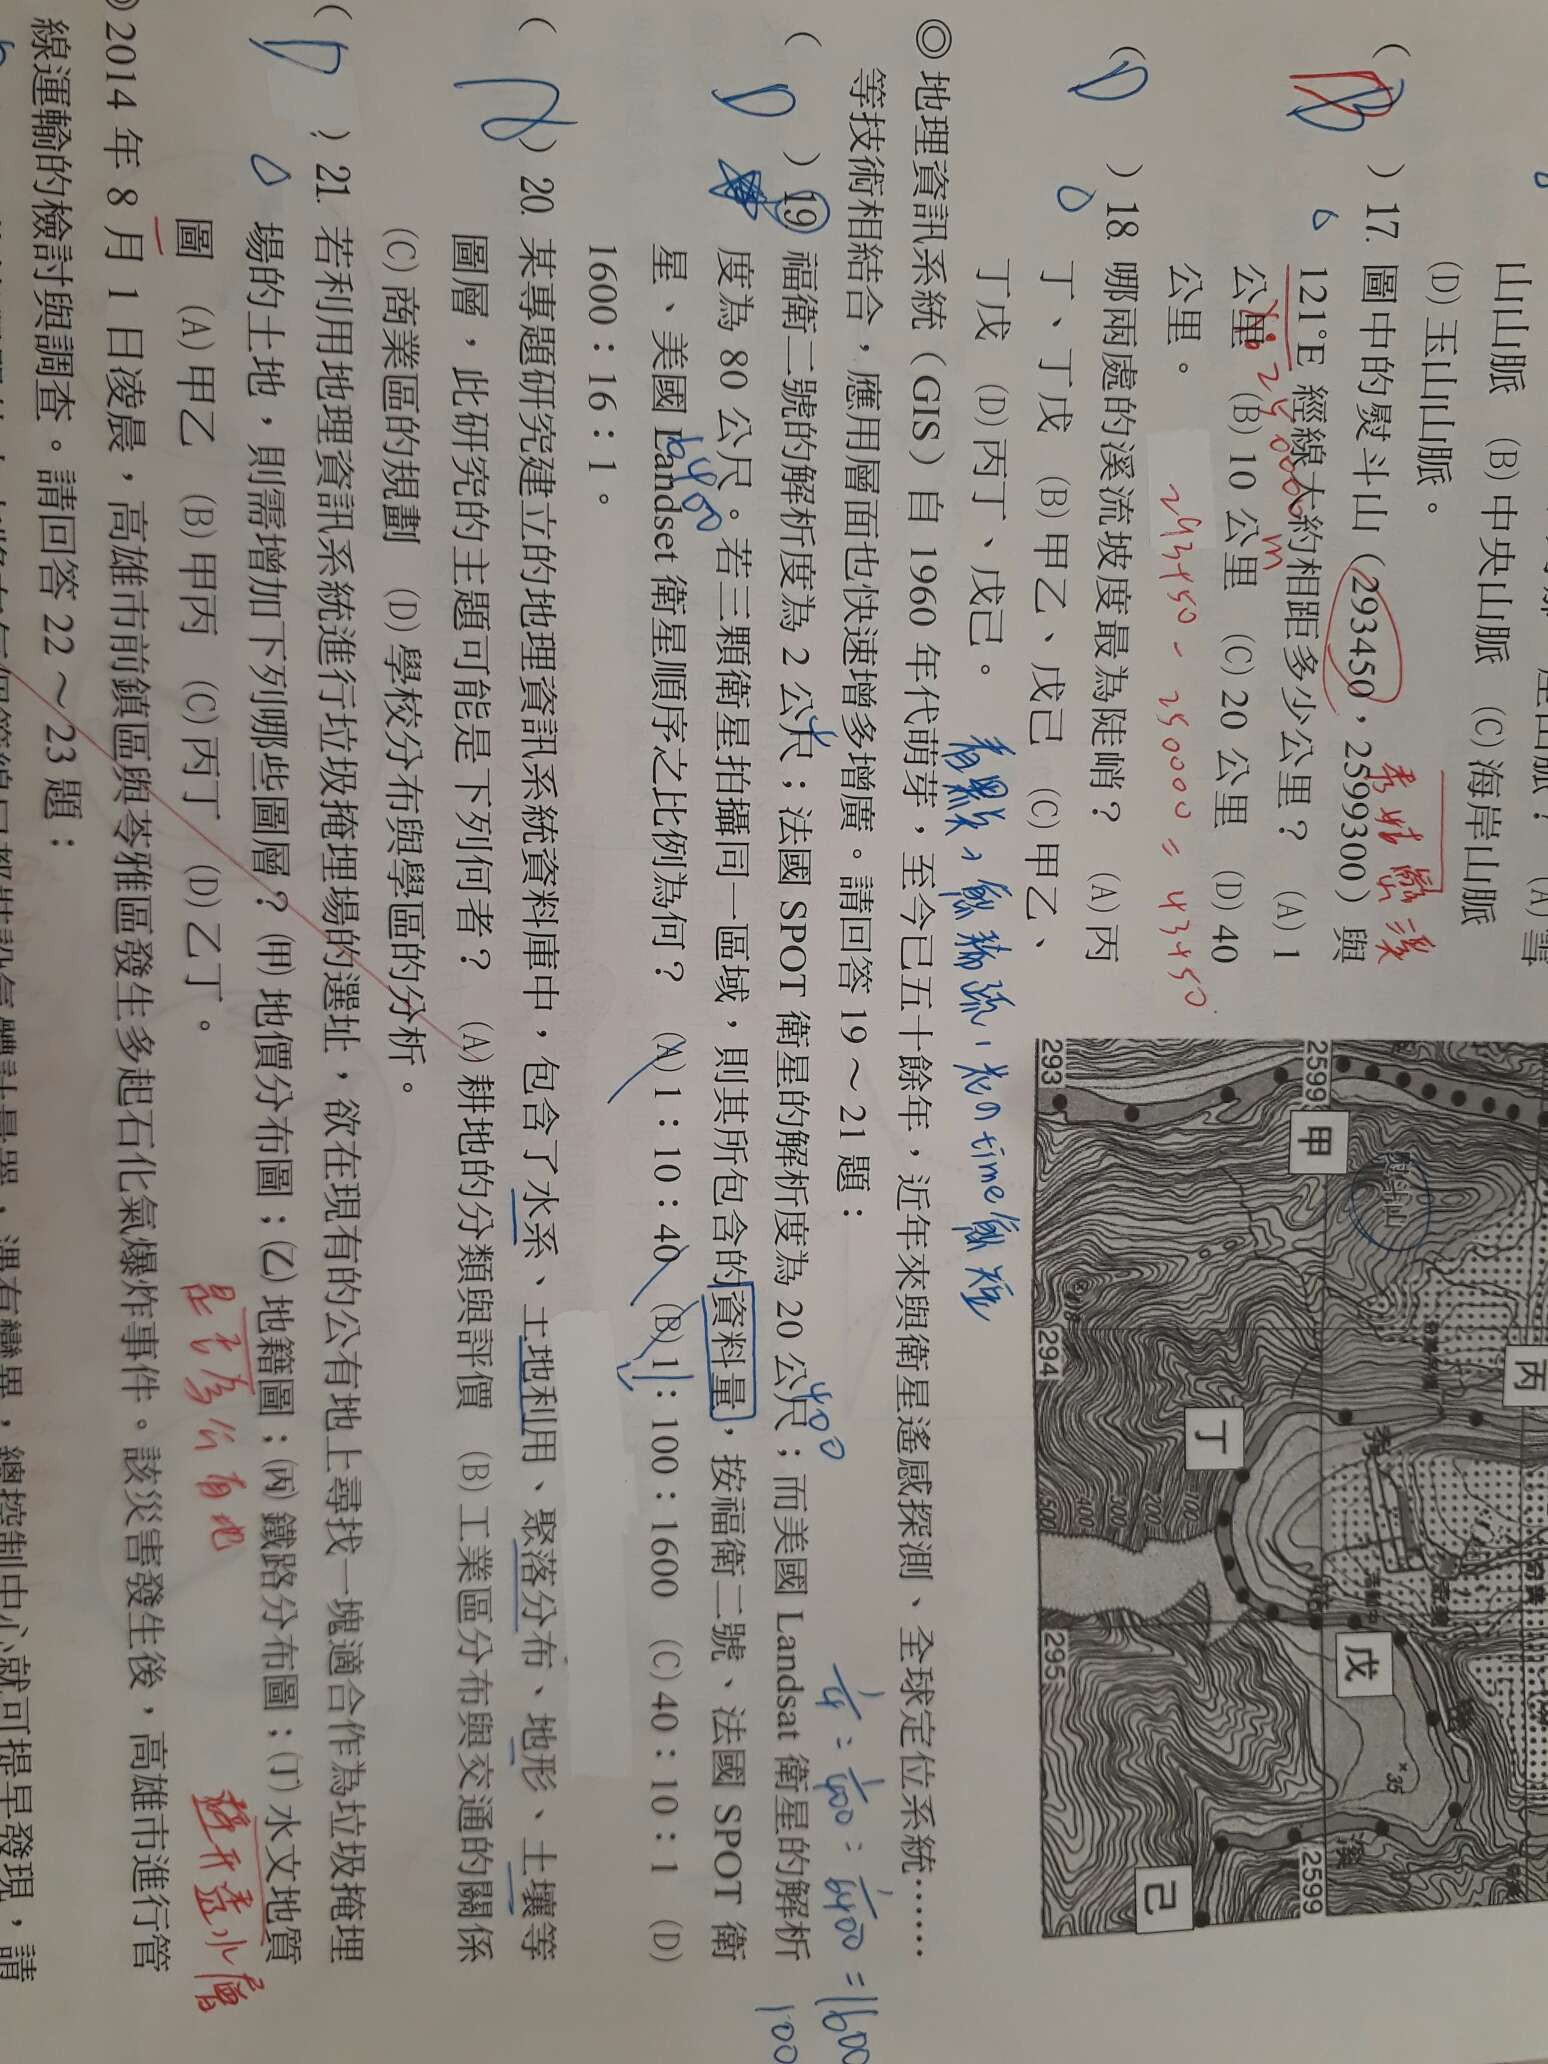 山山脈　(B)中央山脈　(C)海岸山脈
(D)玉山山脈。
(　B　) 17. 圖中的熨斗山（293450，2599300）與
121°E 經線大約相距多少公里？　(A) 1
公里　(B) 10 公里　(C) 20 公里　(D) 40
公里。
293450 - 250000 = 43450
(　D　) 18. 哪兩處的溪流坡度最為陡峭？　(A)丙
丁、丁戊　(B)甲乙、戊己　(C)甲乙、
丁戊　(D)丙丁、戊己。
293
294
295
2599
2599
甲
丙
丁
戊
己
100
200
300
400
500
×35
溪
◎ 地理資訊系統（GIS）自 1960 年代萌芽，至今已五十餘年，近年來與衛星遙感探測、全球定位系統……
等技術相結合，應用層面也快速增多增廣。請回答 19～21 題：
(　D　) 19. 福衛二號的解析度為 2 公尺；法國 SPOT 衛星的解析度為 20 公尺；而美國 Landsat 衛星的解析
度為 80 公尺。若三顆衛星拍攝同一區域，則其所包含的資料量，按福衛二號、法國 SPOT 衛
星、美國 Landset 衛星順序之比例為何？　(A) 1：10：40　(B) 1：100：1600　(C) 40：10：1　(D)
1600：16：1。
4
400
6400
1/4 : 1/400 : 1/6400 = 1600
100
(　A　) 20. 某專題研究建立的地理資訊系統資料庫中，包含了水系、土地利用、聚落分布、地形、土壤等
圖層，此研究的主題可能是下列何者？　(A)耕地的分類與評價　(B)工業區分布與交通的關係
(C)商業區的規劃　(D)學校分布與學區的分析。
(　D　) 21. 若利用地理資訊系統進行垃圾掩埋場的選址，欲在現有的公有地上尋找一塊適合作為垃圾掩埋
場的土地，則需增加下列哪些圖層？(甲)地價分布圖；(乙)地籍圖；(丙)鐵路分布圖；(丁)水文地質
圖　(A)甲乙　(B)甲丙　(C)丙丁　(D)乙丁。
是否為公有地
避開透水層
◎ 2014 年 8 月 1 日凌晨，高雄市前鎮區與苓雅區發生多起石化氣爆炸事件。該災害發生後，高雄市進行管
線運輸的檢討與調查。請回答 22～23 題：